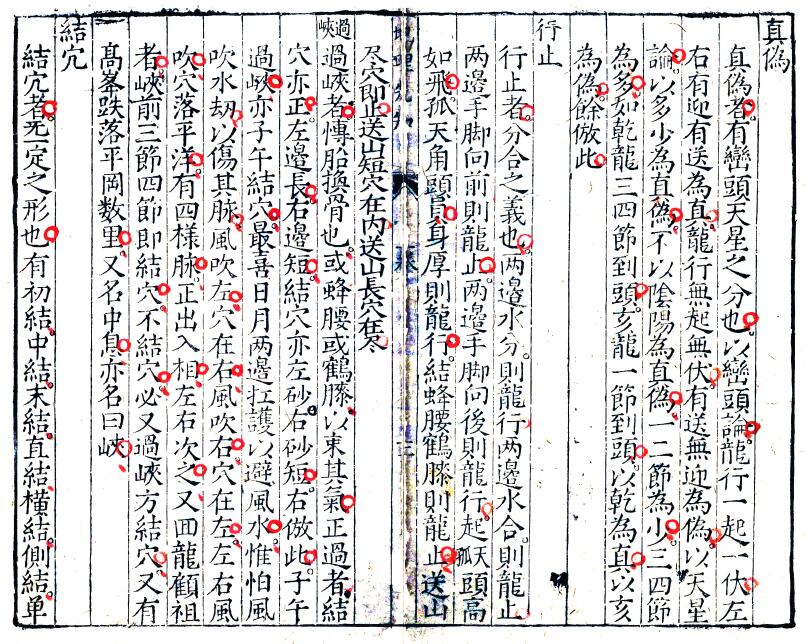 真偽
真偽者有巒頭天星之分也以巒頭論龍行一起一伏左
右有迎有送為真龍行無起無伏有送無迎為偽以天星
論以多少為真偽不以陰陽為真偽一二節為少三四節
為多如乾龍三四節到頭亥龍一節到頭以乾為真以亥
為偽餘倣此
行止
行止者分合之義也两邊水分則龍行两邊水合則龍止
两邊手脚向前則龍止两邊手脚向後則龍行起天孤頭高
如飛孤天角頭員身厚則龍行結蜂腰鶴膝則龍止送山
尽穴即止送山短穴在内送山長穴在尽
過峽
過峽者慱胎換骨也或蜂腰或鶴膝以束其氣正過者結
穴亦正左邊長右邊短結穴亦左砂右砂短右倣此子午
過峽亦子午結穴最喜日月两邊扛護以避風水惟怕風
吹水刼以傷其脉風吹左穴在右風吹右穴在左左右風
吹穴落平洋有四様脉正出入相左右次之又囬龍顧祖
者峽前三節四節即結穴不結穴必又過峽方結穴又有
髙峯跌落平岡数里又名中息亦名曰峽
結穴
結穴者死一定之形也有初結中結末結直結横結側結单